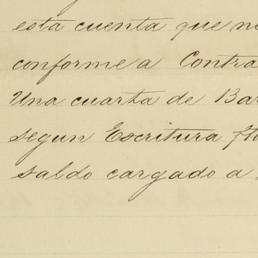 esta cuenta que no
conforme a Contra
Una cuarta de Bar
segun Escritura fh
saldo cargado a